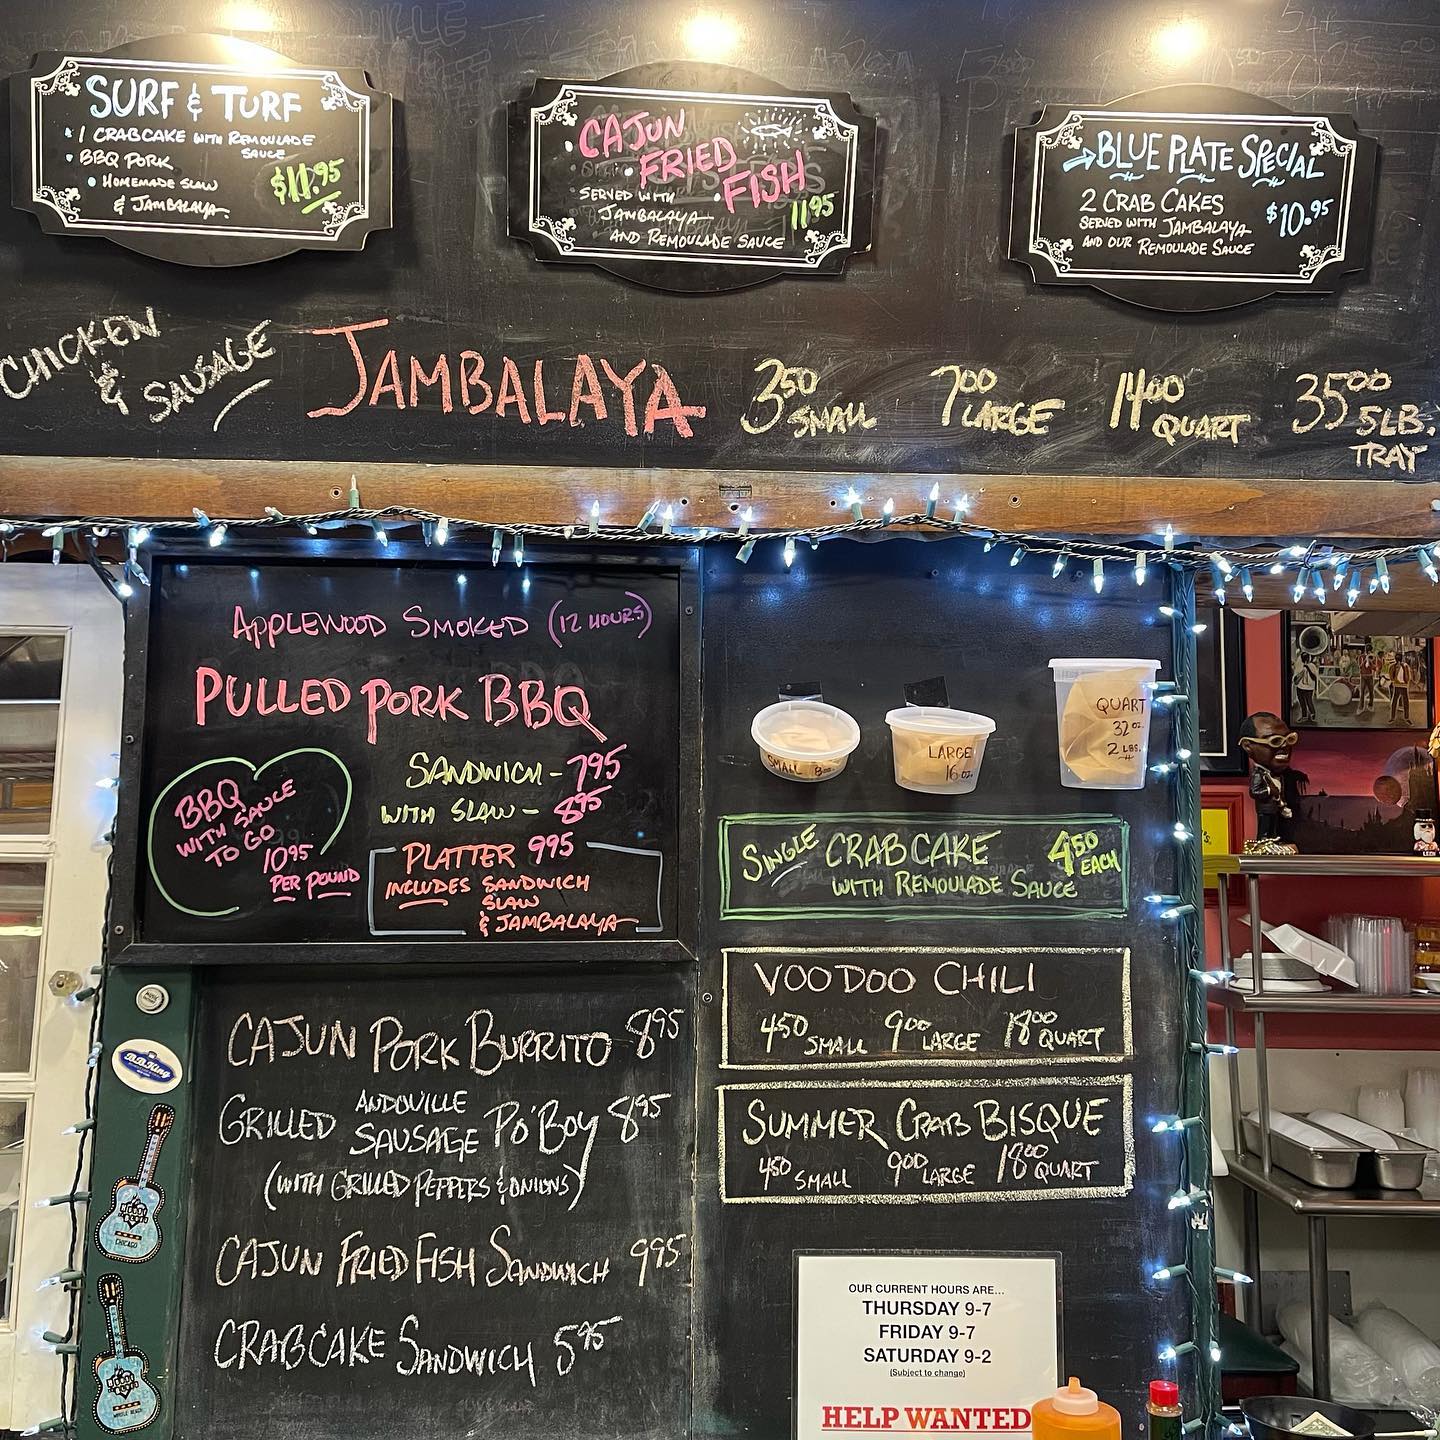 SURF & TURF
• 1 CRABCAKE WITH REMOULADE
SAUCE
• BBQ PORK
• HOMEMADE SLAW
& JAMBALAYA
$11.95
• CAJUN
• FRIED
• FISH
SERVED WITH
JAMBALAYA
AND REMOULADE SAUCE
11.95
→BLUE PLATE SPECIAL
2 CRAB CAKES
SERVED WITH JAMBALAYA
AND OUR REMOULADE SAUCE
$10.95
CHICKEN
& SAUSAGE
JAMBALAYA
3.50 SMALL
7.00 LARGE
14.00 QUART
35.00 5LB.
TRAY
APPLEWOOD SMOKED (12 HOURS)
PULLED PORK BBQ
SANDWICH - 7.95
WITH SLAW - 8.95
BBQ
WITH SAUCE
TO GO
10.95
PER POUND
PLATTER 9.95
INCLUDES SANDWICH
SLAW
& JAMBALAYA
SMALL 8oz
LARGE
16 oz.
QUART
32 oz.
2 LBS.
SINGLE CRABCAKE 4.50 EACH
WITH REMOULADE SAUCE
VOODOO CHILI
4.50 SMALL 9.00 LARGE 18.00 QUART
SUMMER CRAB BISQUE
4.50 SMALL 9.00 LARGE 18.00 QUART
CAJUN PORK BURRITO 8.95
GRILLED ANDOUILLE SAUSAGE PO'BOY 8.95
(WITH GRILLED PEPPERS & ONIONS)
CAJUN FRIED FISH SANDWICH 9.95
CRABCAKE SANDWICH 5.95
B.B. King
CHICAGO
OUR CURRENT HOURS ARE...
THURSDAY 9-7
FRIDAY 9-7
SATURDAY 9-2
(Subject to change)
HELP WANTED